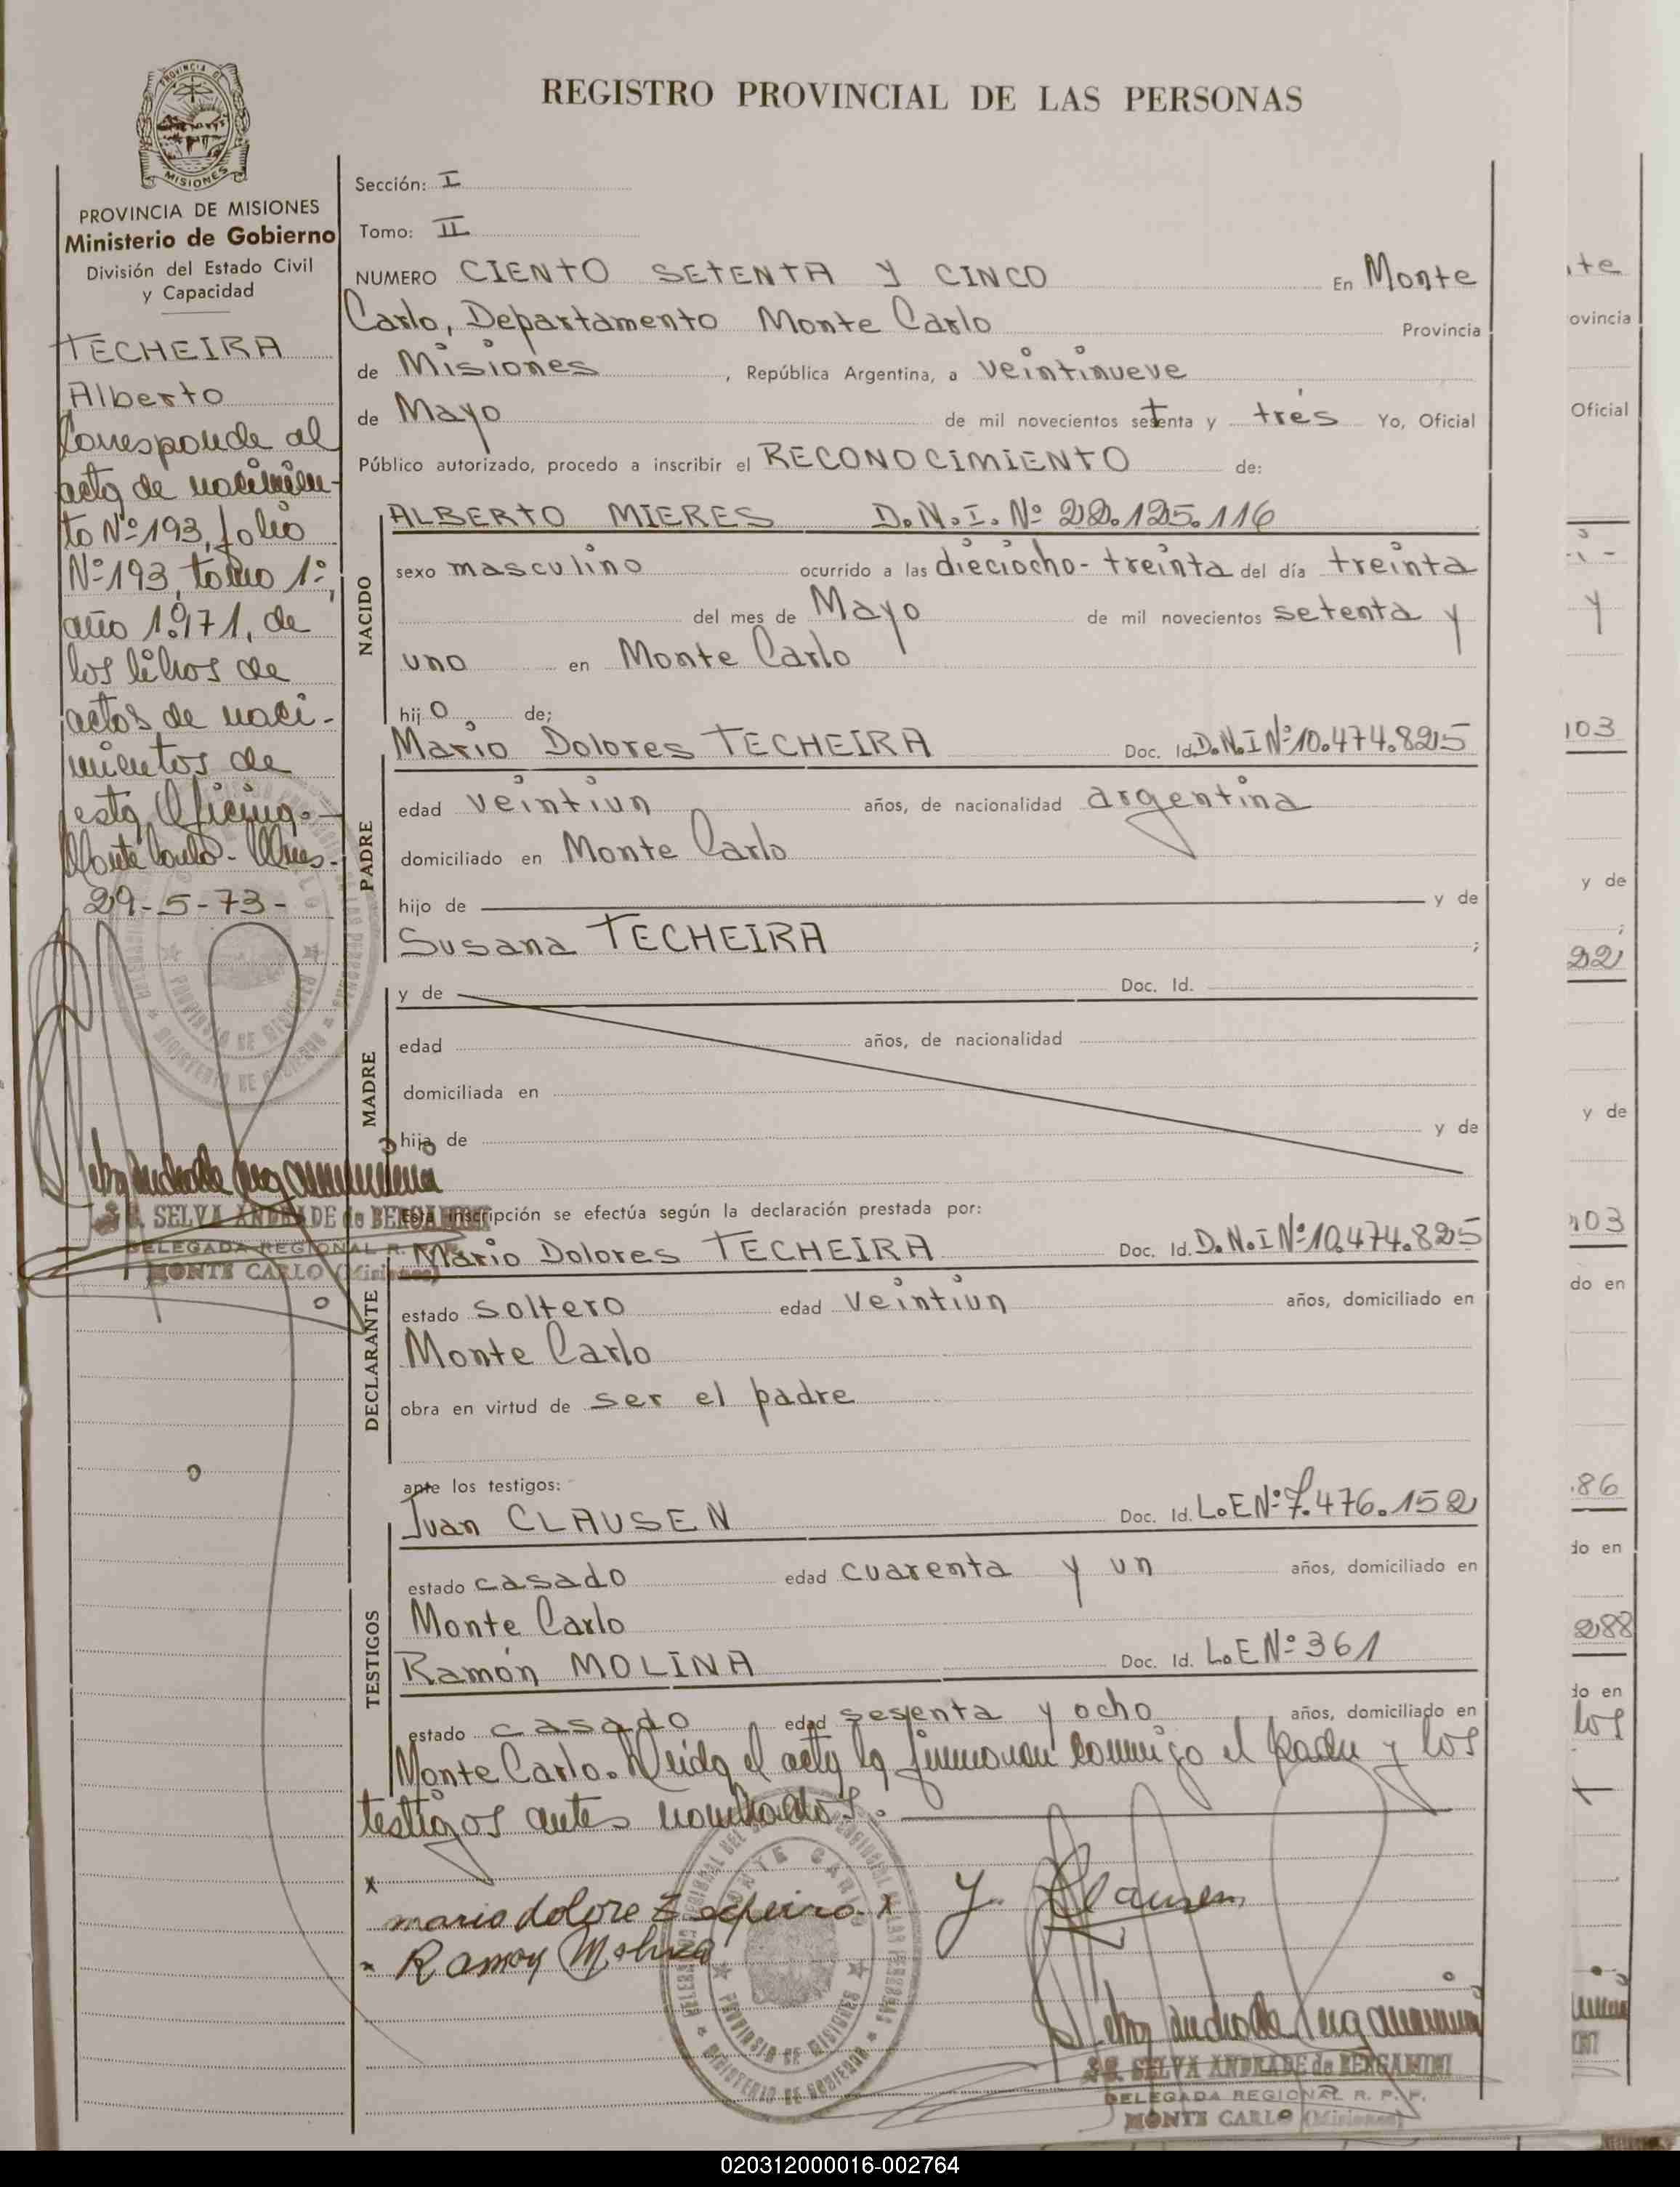 REGISTRO PROVINCIAL DE LAS PERSONAS
PROVINCIA DE
MISIONES
PROVINCIA DE MISIONES
Ministerio de Gobierno
División del Estado Civil
y Capacidad
TECHEIRA
Alberto
Corresponde al
acta de nacimien-
to Nº 193, folio
Nº 193, tomo 1º,
año 1.971, de
los libros de
actas de naci-
mientos de
esta Oficina.-
Monte Carlo - Mnes.-
29-5-73-
S. G. SELVA ANDRADE de BERGAMINI
DELEGADA REGIONAL R. P. P.
MONTE CARLO (Misiones)
Sección: I
Tomo: II
NUMERO CIENTO SETENTA Y CINCO En Monte
Carlo, Departamento Monte Carlo Provincia
de Misiones, República Argentina, a veintinueve
de Mayo de mil novecientos setenta y tres Yo, Oficial
Público autorizado, procedo a inscribir el RECONOCIMIENTO de:
NACIDO
ALBERTO MIERES D.N.I. Nº 22.125.116
sexo masculino ocurrido a las dieciocho-treinta del día treinta
del mes de Mayo de mil novecientos setenta y
uno en Monte Carlo
hijo de;
PADRE
Mario Dolores TECHEIRA Doc. Id. D.N.I Nº 10.474.825
edad veintiun años, de nacionalidad argentina
domiciliado en Monte Carlo
hijo de y de
Susana TECHEIRA ;
MADRE
y de Doc. Id.
edad años, de nacionalidad
domiciliada en
hija de y de
Esta inscripción se efectúa según la declaración prestada por:
DECLARANTE
Mario Dolores TECHEIRA Doc. Id. D.N.I Nº 10.474.825
estado soltero edad veintiun años, domiciliado en
Monte Carlo
obra en virtud de ser el padre
ante los testigos:
TESTIGOS
Juan CLAUSEN Doc. Id. L.E Nº 7.476.152
estado casado edad cuarenta y un años, domiciliado en
Monte Carlo
Ramón MOLINA Doc. Id. L.E Nº 361
estado casado edad sesenta y ocho años, domiciliado en
Monte Carlo. Leida el acta la firmaron conmigo el padre y los
testigos antes nombrados.
x
mario dolore Techeira x J. Clausen
x Ramon Molina
S. G. SELVA ANDRADE de BERGAMINI
DELEGADA REGIONAL R. P. P.
MONTE CARLO (Misiones)
te
ovincia
Oficial
y
103
y de
22
y de
103
do en
86
do en
288
do en
los
020312000016-002764